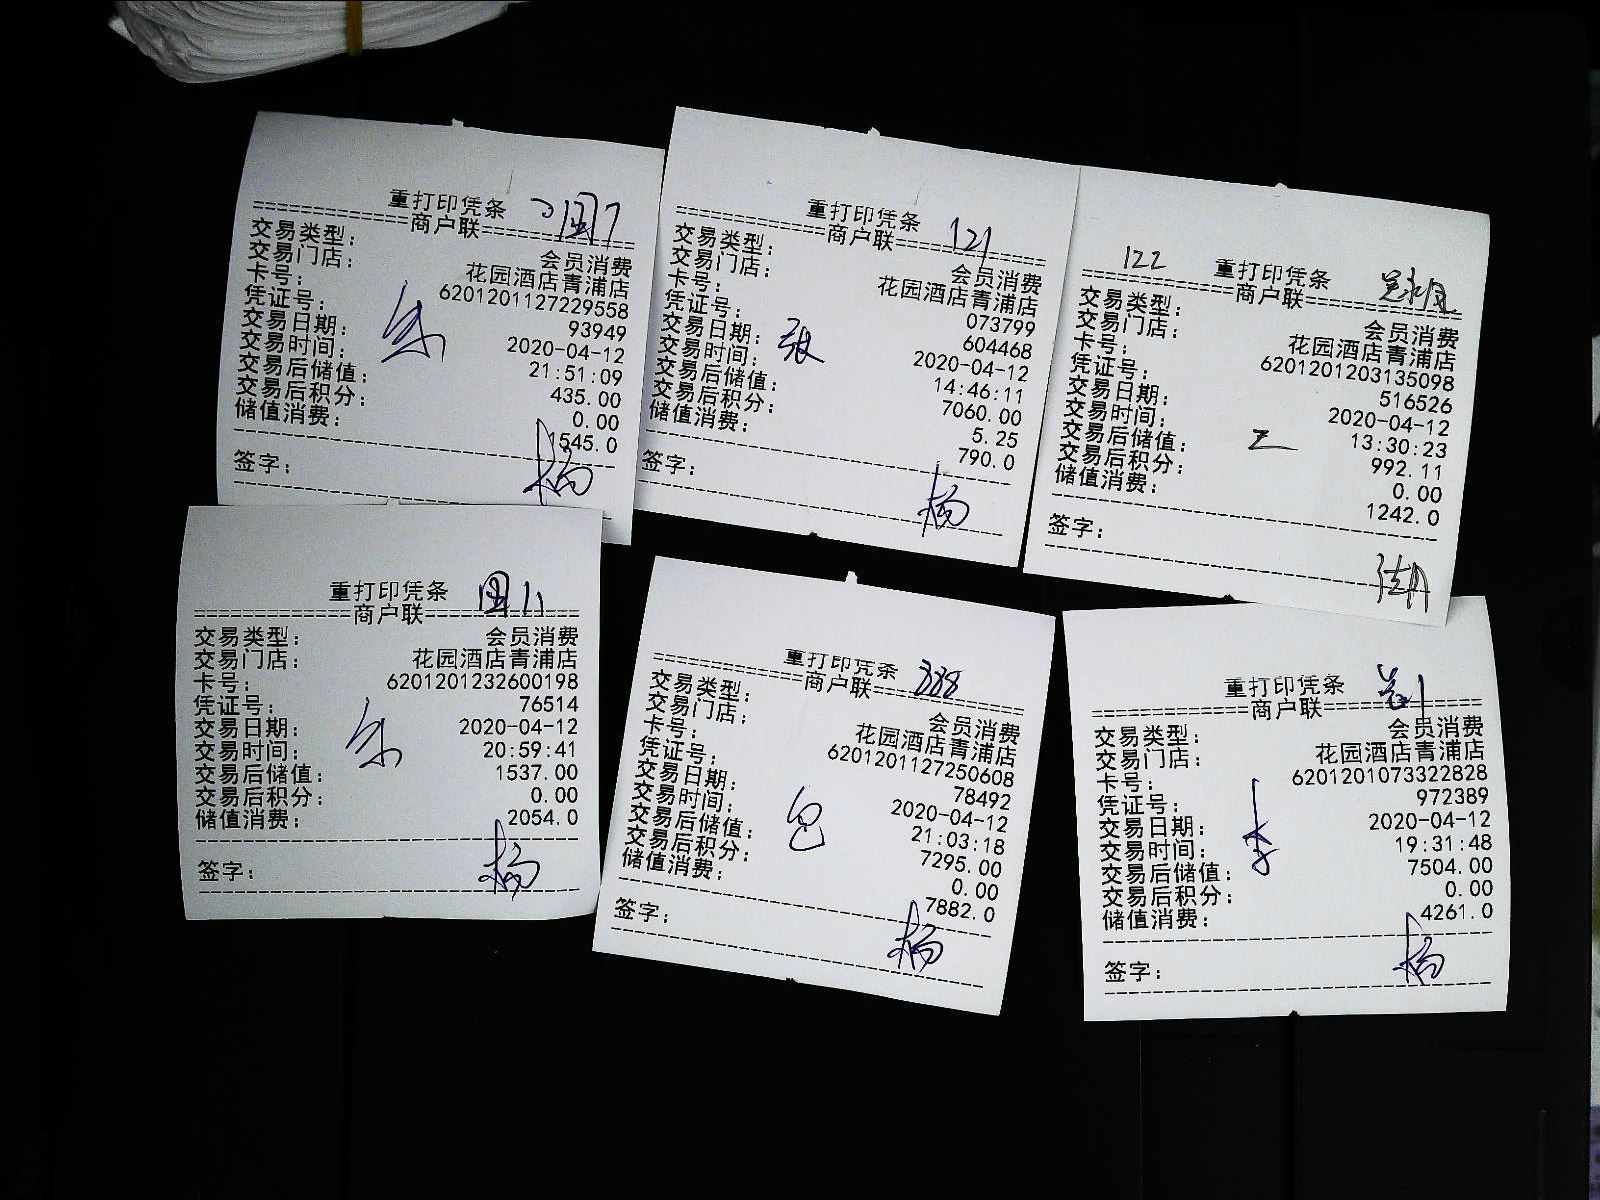 重打印凭条
商户联
交易类型: 会员消费
交易门店: 花园酒店青浦店
卡号: 6201201127229558
凭证号: 93949
交易日期: 2020-04-12
交易时间: 21:51:09
交易后储值: 435.00
交易后积分: 0.00
储值消费: 1545.0
签字:
杨
重打印凭条 121
商户联
交易类型: 会员消费
交易门店: 花园酒店青浦店
卡号: 073799
凭证号: 604468
交易日期: 2020-04-12
交易时间: 14:46:11
交易后储值: 7060.00
交易后积分: 5.25
储值消费: 790.0
张
签字:
杨
122 重打印凭条
商户联
交易类型: 会员消费
交易门店: 花园酒店青浦店
卡号: 6201201203135098
凭证号: 516526
交易日期: 2020-04-12
交易时间: 13:30:23
交易后储值: 992.11
交易后积分: 0.00
储值消费: 1242.0
签字:
重打印凭条
商户联
交易类型: 会员消费
交易门店: 花园酒店青浦店
卡号: 6201201232600198
凭证号: 76514
交易日期: 2020-04-12
交易时间: 20:59:41
交易后储值: 1537.00
交易后积分: 0.00
储值消费: 2054.0
签字:
杨
重打印凭条 888
商户联
交易类型: 会员消费
交易门店: 花园酒店青浦店
卡号: 6201201127250608
凭证号: 78492
交易日期: 2020-04-12
交易时间: 21:03:18
交易后储值: 7295.00
交易后积分: 0.00
储值消费: 7882.0
包
签字:
杨
重打印凭条
商户联
交易类型: 会员消费
交易门店: 花园酒店青浦店
卡号: 6201201073322828
凭证号: 972389
交易日期: 2020-04-12
交易时间: 19:31:48
交易后储值: 7504.00
交易后积分: 0.00
储值消费: 4261.0
李
签字:
杨